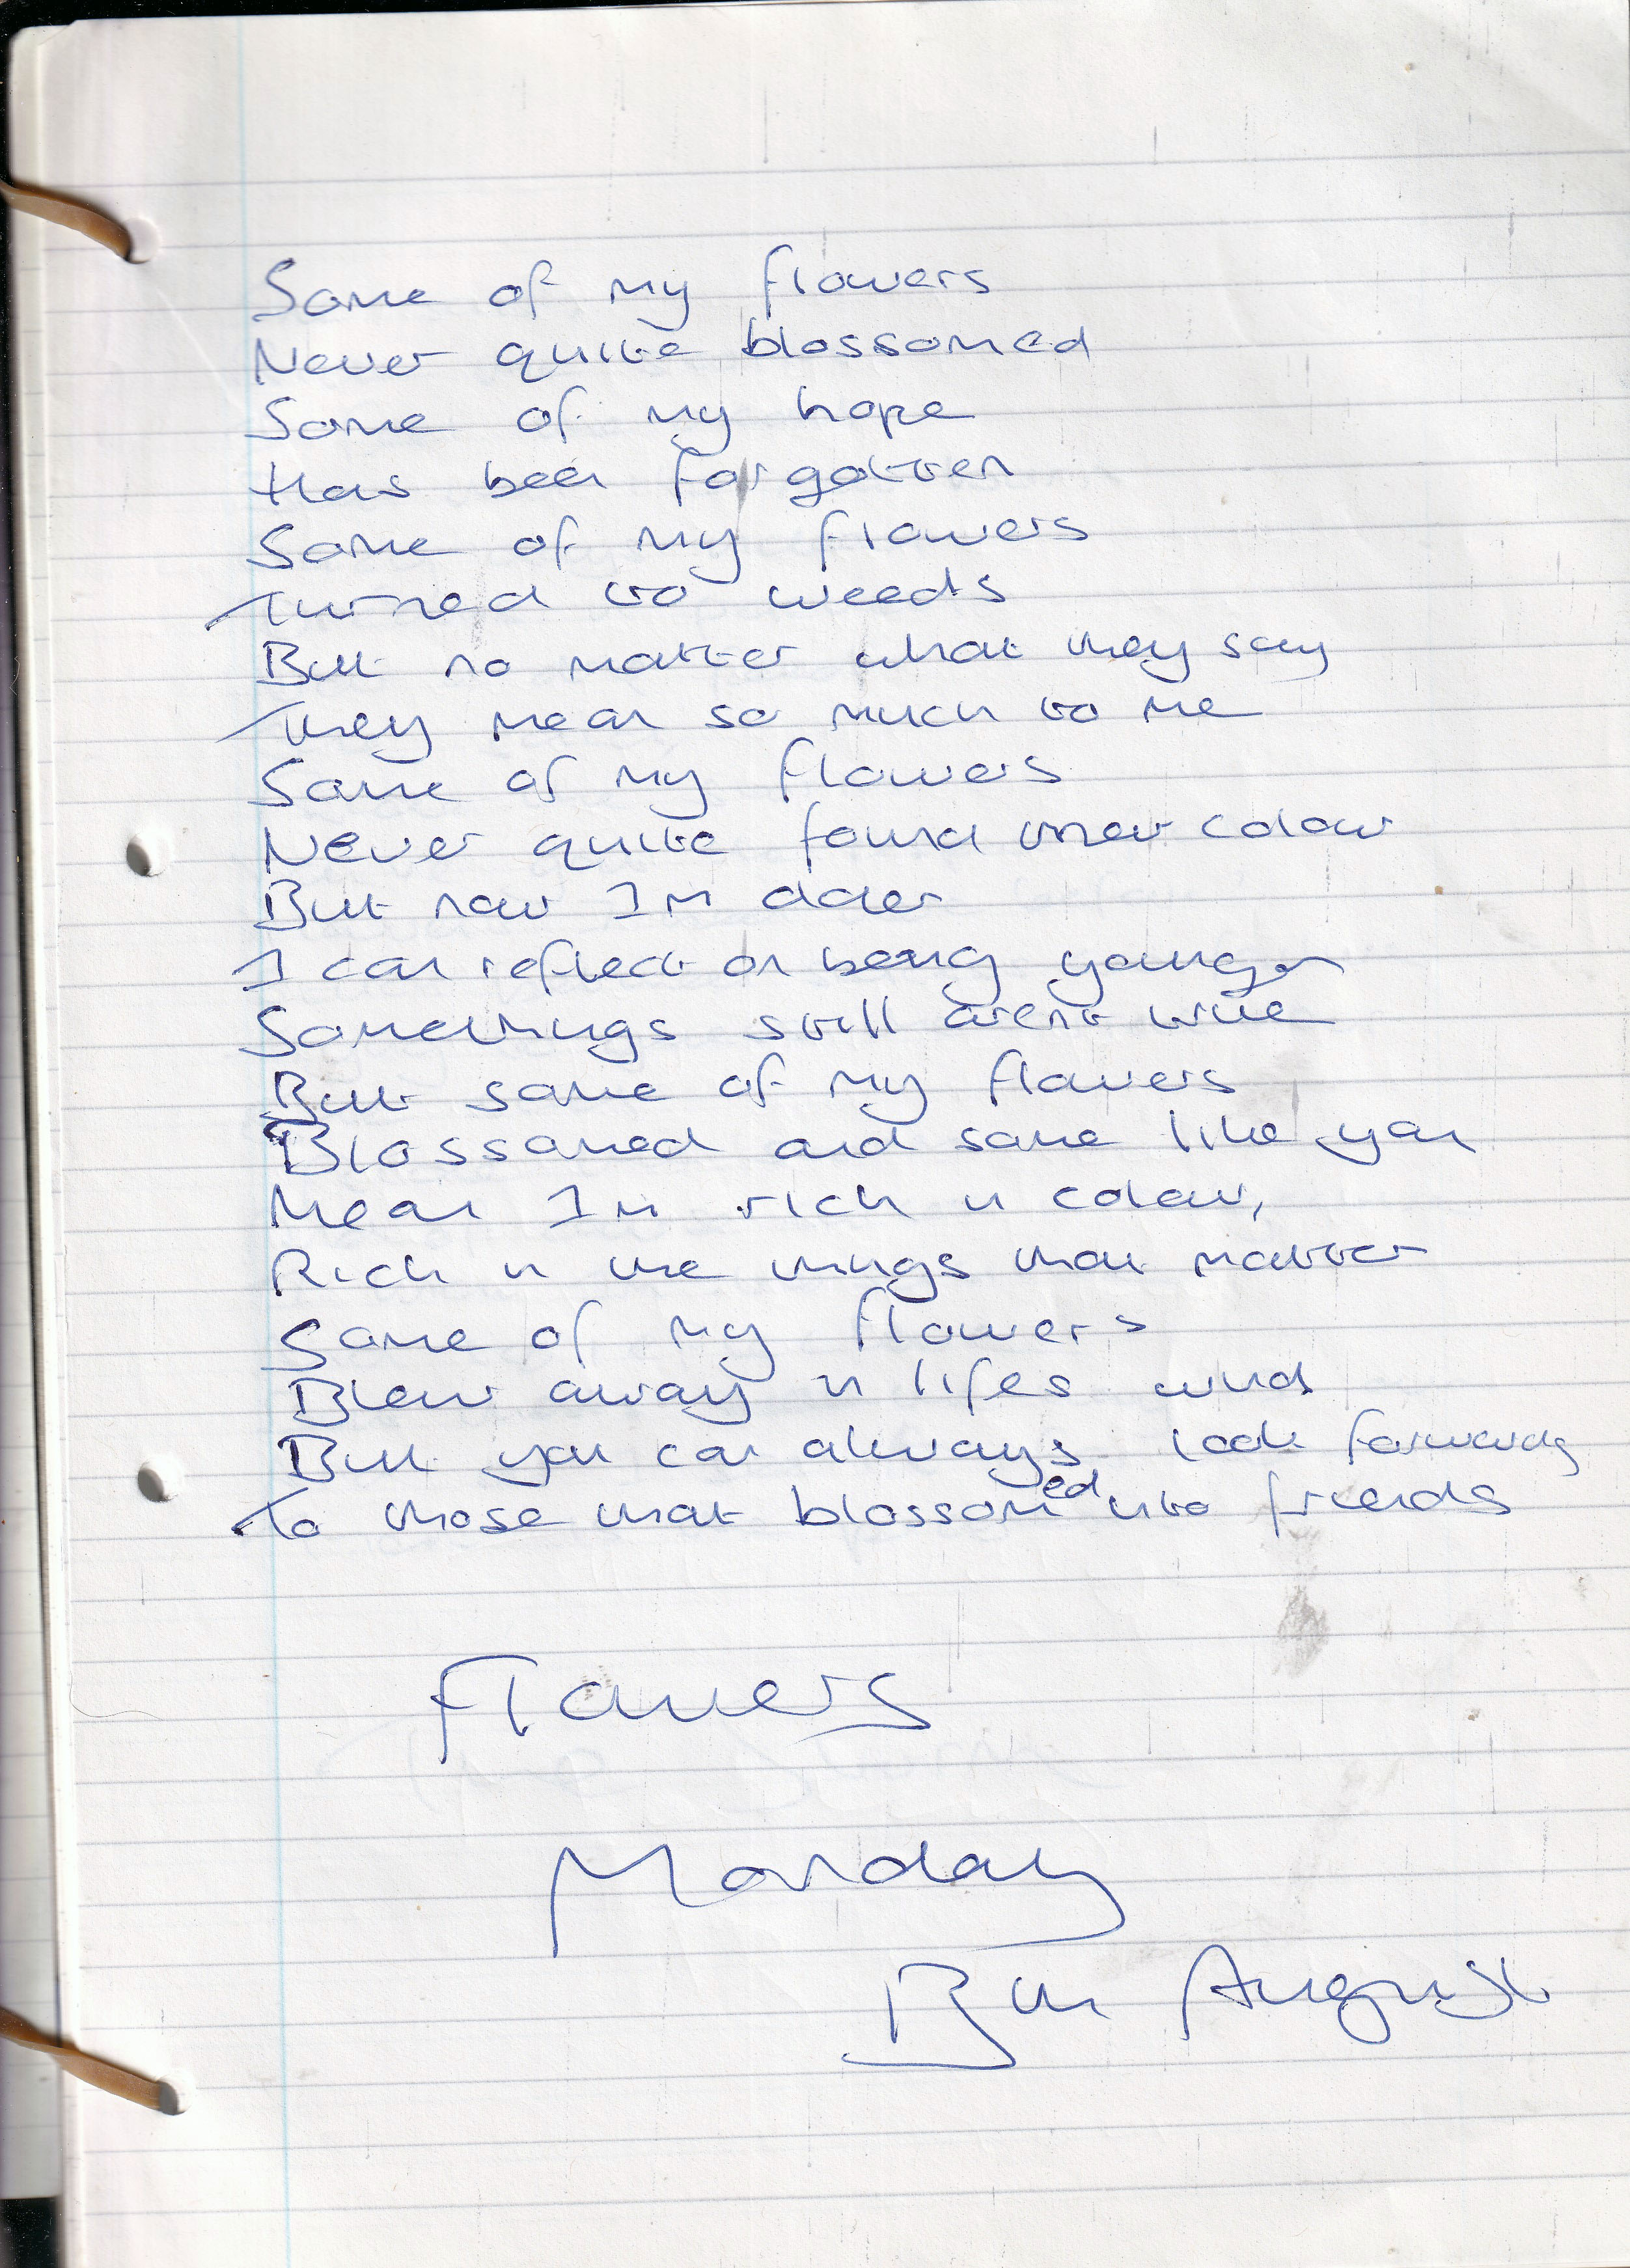 Some of my flowers
Never quite blossomed
Some of my hope
Has been forgotten
Some of my flowers
Turned to weeds
But no matter what they say
They mean so much to me
Some of my flowers
Never quite found their colour
But now Im older
I can reflect on being younger
Somethings still arent true
But some of my flowers
Blossomed and some like you
Mean Im rich in colour,
Rich in the things that matter
Some of my flowers
Blew away in lifes wind
But you can always look forward
To those that blossomed into friends
Flowers
Monday
8th August